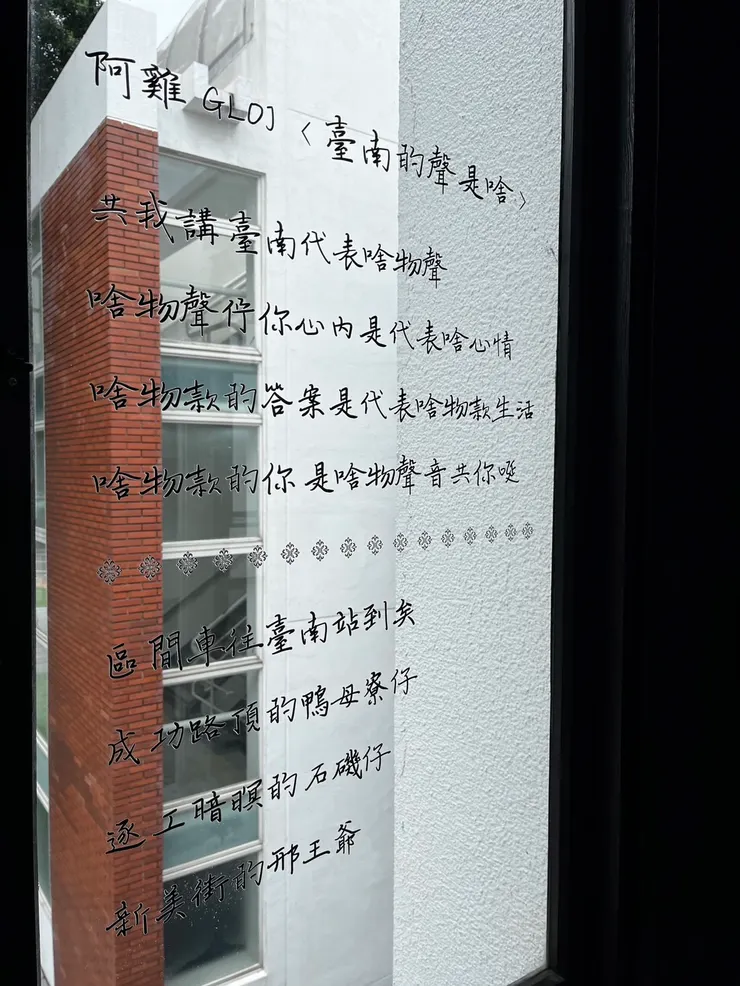 阿雞 GLOJ〈臺南的聲是啥〉
共我講臺南代表啥物聲
啥物聲佇你心內是代表啥心情
啥物款的答案是代表啥物款生活
啥物款的你 是啥物聲音共你唌
區間車往臺南站到矣
成功路頂的鴨母寮仔
逐工暗暝的石磯仔
新美街的邢王爺